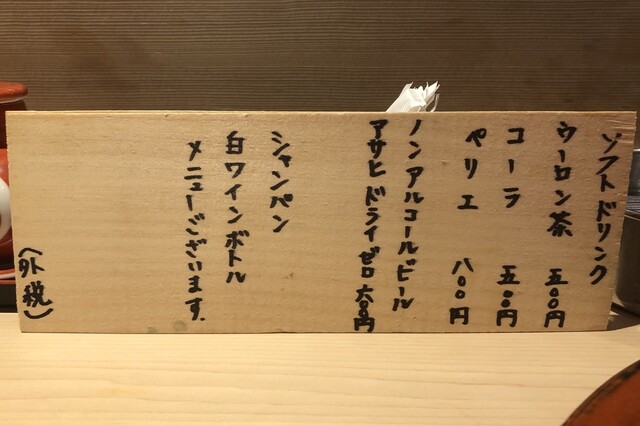 ソフトドリンク
ウーロン茶 五〇〇円
コーラ 五〇〇円
ペリエ 八〇〇円
ノンアルコールビール
アサヒドライゼロ 六〇〇円
シャンパン
白ワインボトル
メニューございます.
(外税)